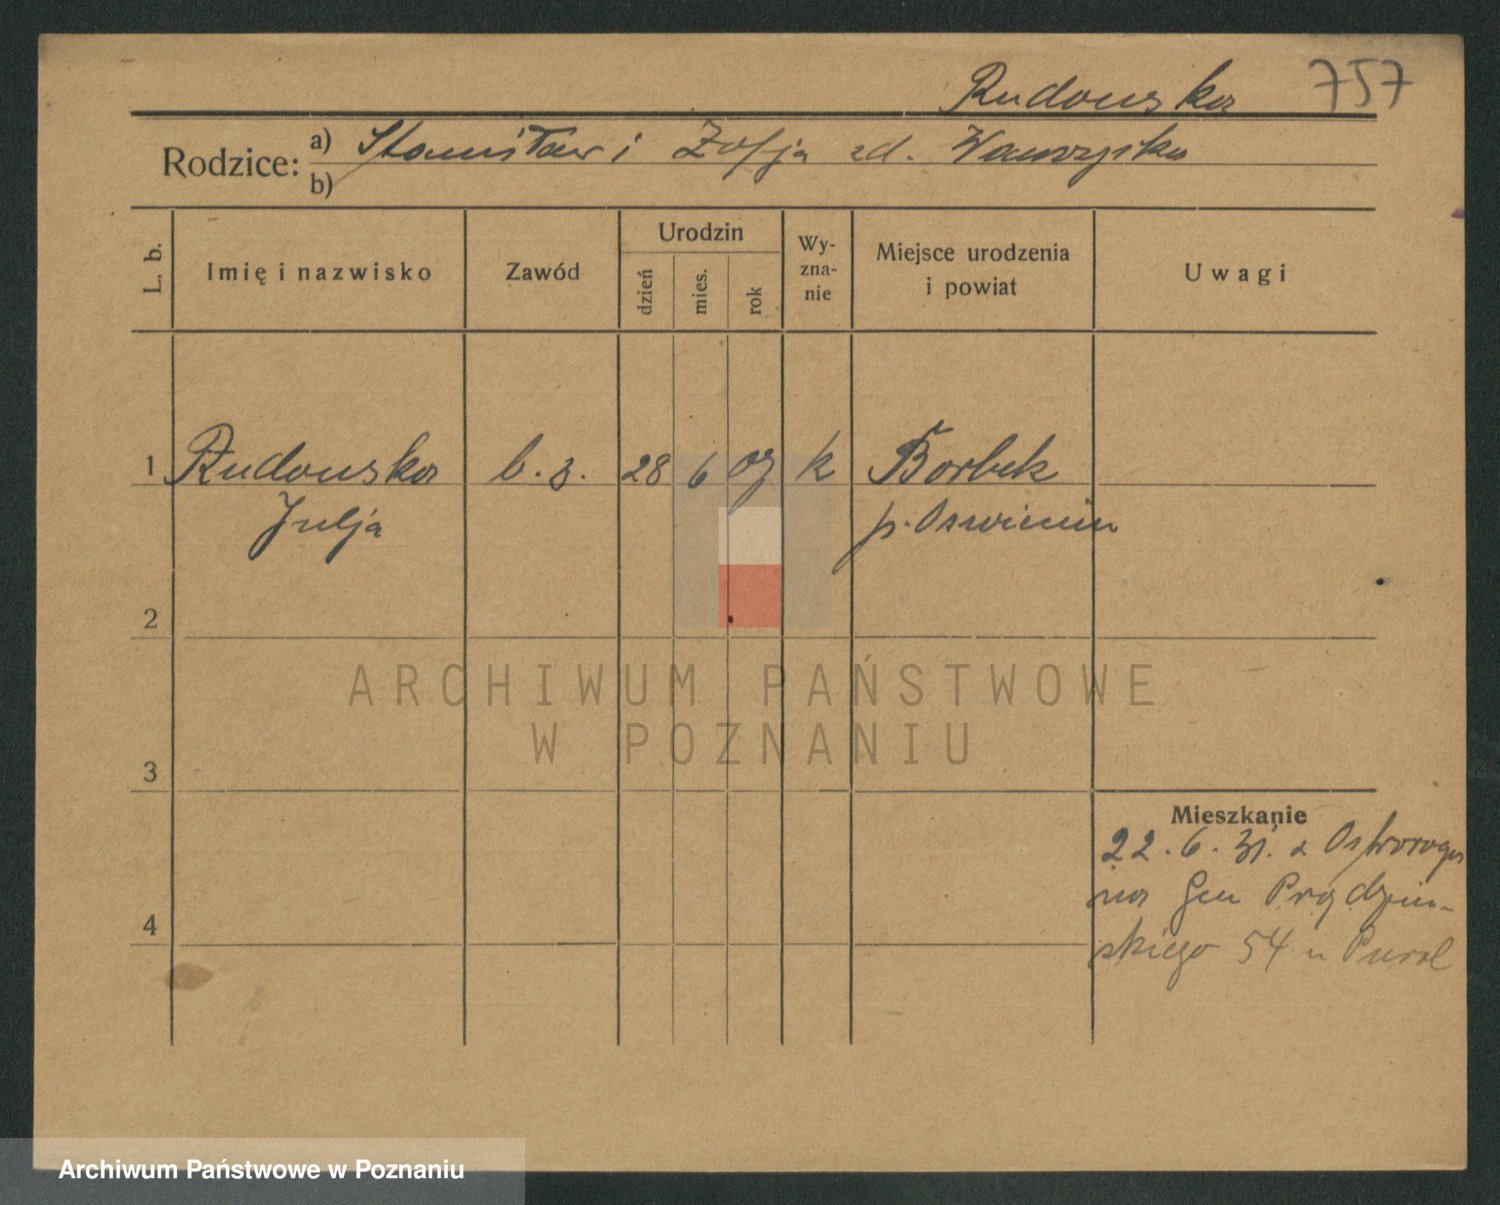 Rudowska 757
Rodzice: a) Stanisław i Zofja zd. Wawrzyska
b)
L. b. Imię i nazwisko Zawód Urodzin dzień mies. rok Wyzna-nie Miejsce urodzenia i powiat Uwagi
1 Rudowska b. z. 28 6 09 k Borbek
Julja p. Oswiencim
2
ARCHIWUM PAŃSTWOWE
W POZNANIU
3
Mieszkanie
22. 6. 31. z Ostroroga
na Gen Prądzyń-
4
skiego 54 u
Archiwum Państwowe w Poznaniu